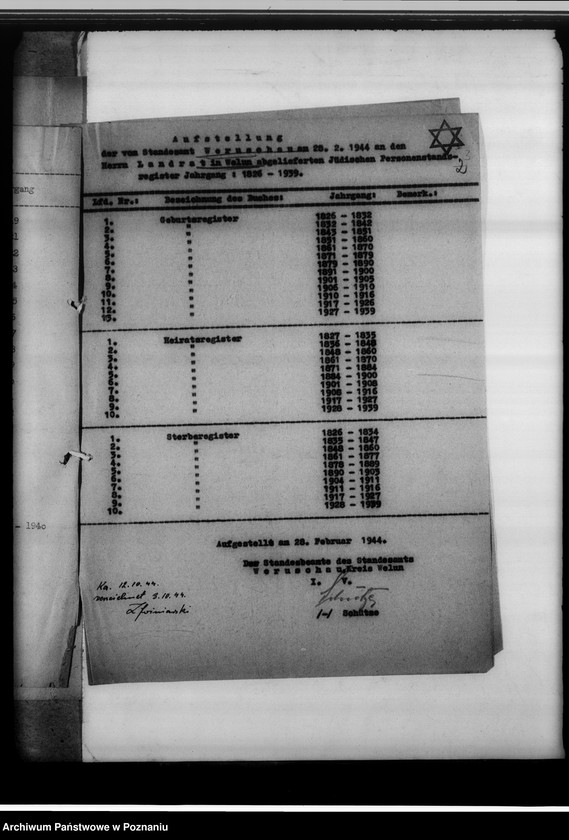 Aufstellung
der vom Standesamt Weruschau am 28. 2. 1944 an den
Herrn Landrat in Welun abgelieferten Jüdischen Personenstands-
register Jahrgang : 1826 - 1939.
2
Lfd. Nr.: Bezeichnung des Buches: Jahrgang: Bemerk.:
1. Geburtsregister 1826 - 1832
2. " 1832 - 1842
3. " 1843 - 1851
4. " 1851 - 1860
5. " 1861 - 1870
6. " 1871 - 1879
7. " 1879 - 1890
8. " 1891 - 1900
9. " 1901 - 1905
10. " 1906 - 1910
11. " 1910 - 1916
12. " 1917 - 1926
13. " 1927 - 1939
1. Heiratsregister 1827 - 1835
2. " 1836 - 1848
3. " 1848 - 1860
4. " 1861 - 1870
5. " 1871 - 1884
6. " 1884 - 1900
7. " 1901 - 1908
8. " 1908 - 1916
9. " 1917 - 1927
10. " 1928 - 1939
1. Sterberegister 1826 - 1834
2. " 1835 - 1847
3. " 1848 - 1860
4. " 1861 - 1877
5. " 1878 - 1889
6. " 1890 - 1903
7. " 1904 - 1911
8. " 1911 - 1916
9. " 1917 - 1927
10. " 1928 - 1939
- 1940
Aufgestellt am 28. Februar 1944.
Der Standesbeamte des Standesamts
Weruschau, Kreis Welun
I. V.
Schütze
Ka. 12.10.44.
3.10.44.
Archiwum Państwowe w Poznaniu